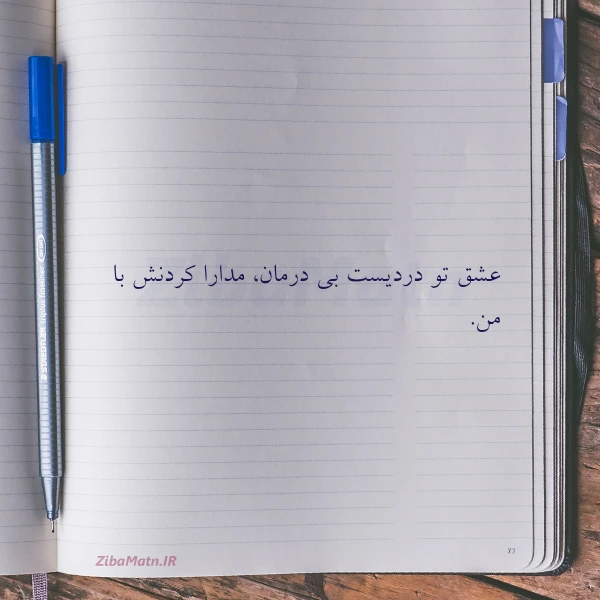 عشق تو دردیست بی درمان، مدارا کردنش با
من.
ZibaMatn.IR
77